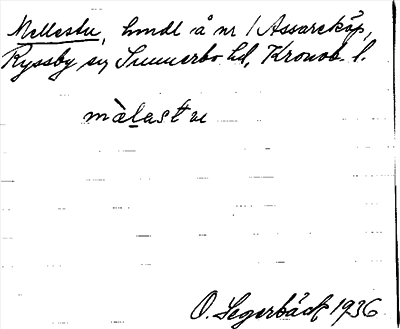 Mellestu, hmdl å nr 1 Assareköp,
Ryssby sn Sunnerbo hd, Kronob. l.
màlastu
O. Segerbäck 1936